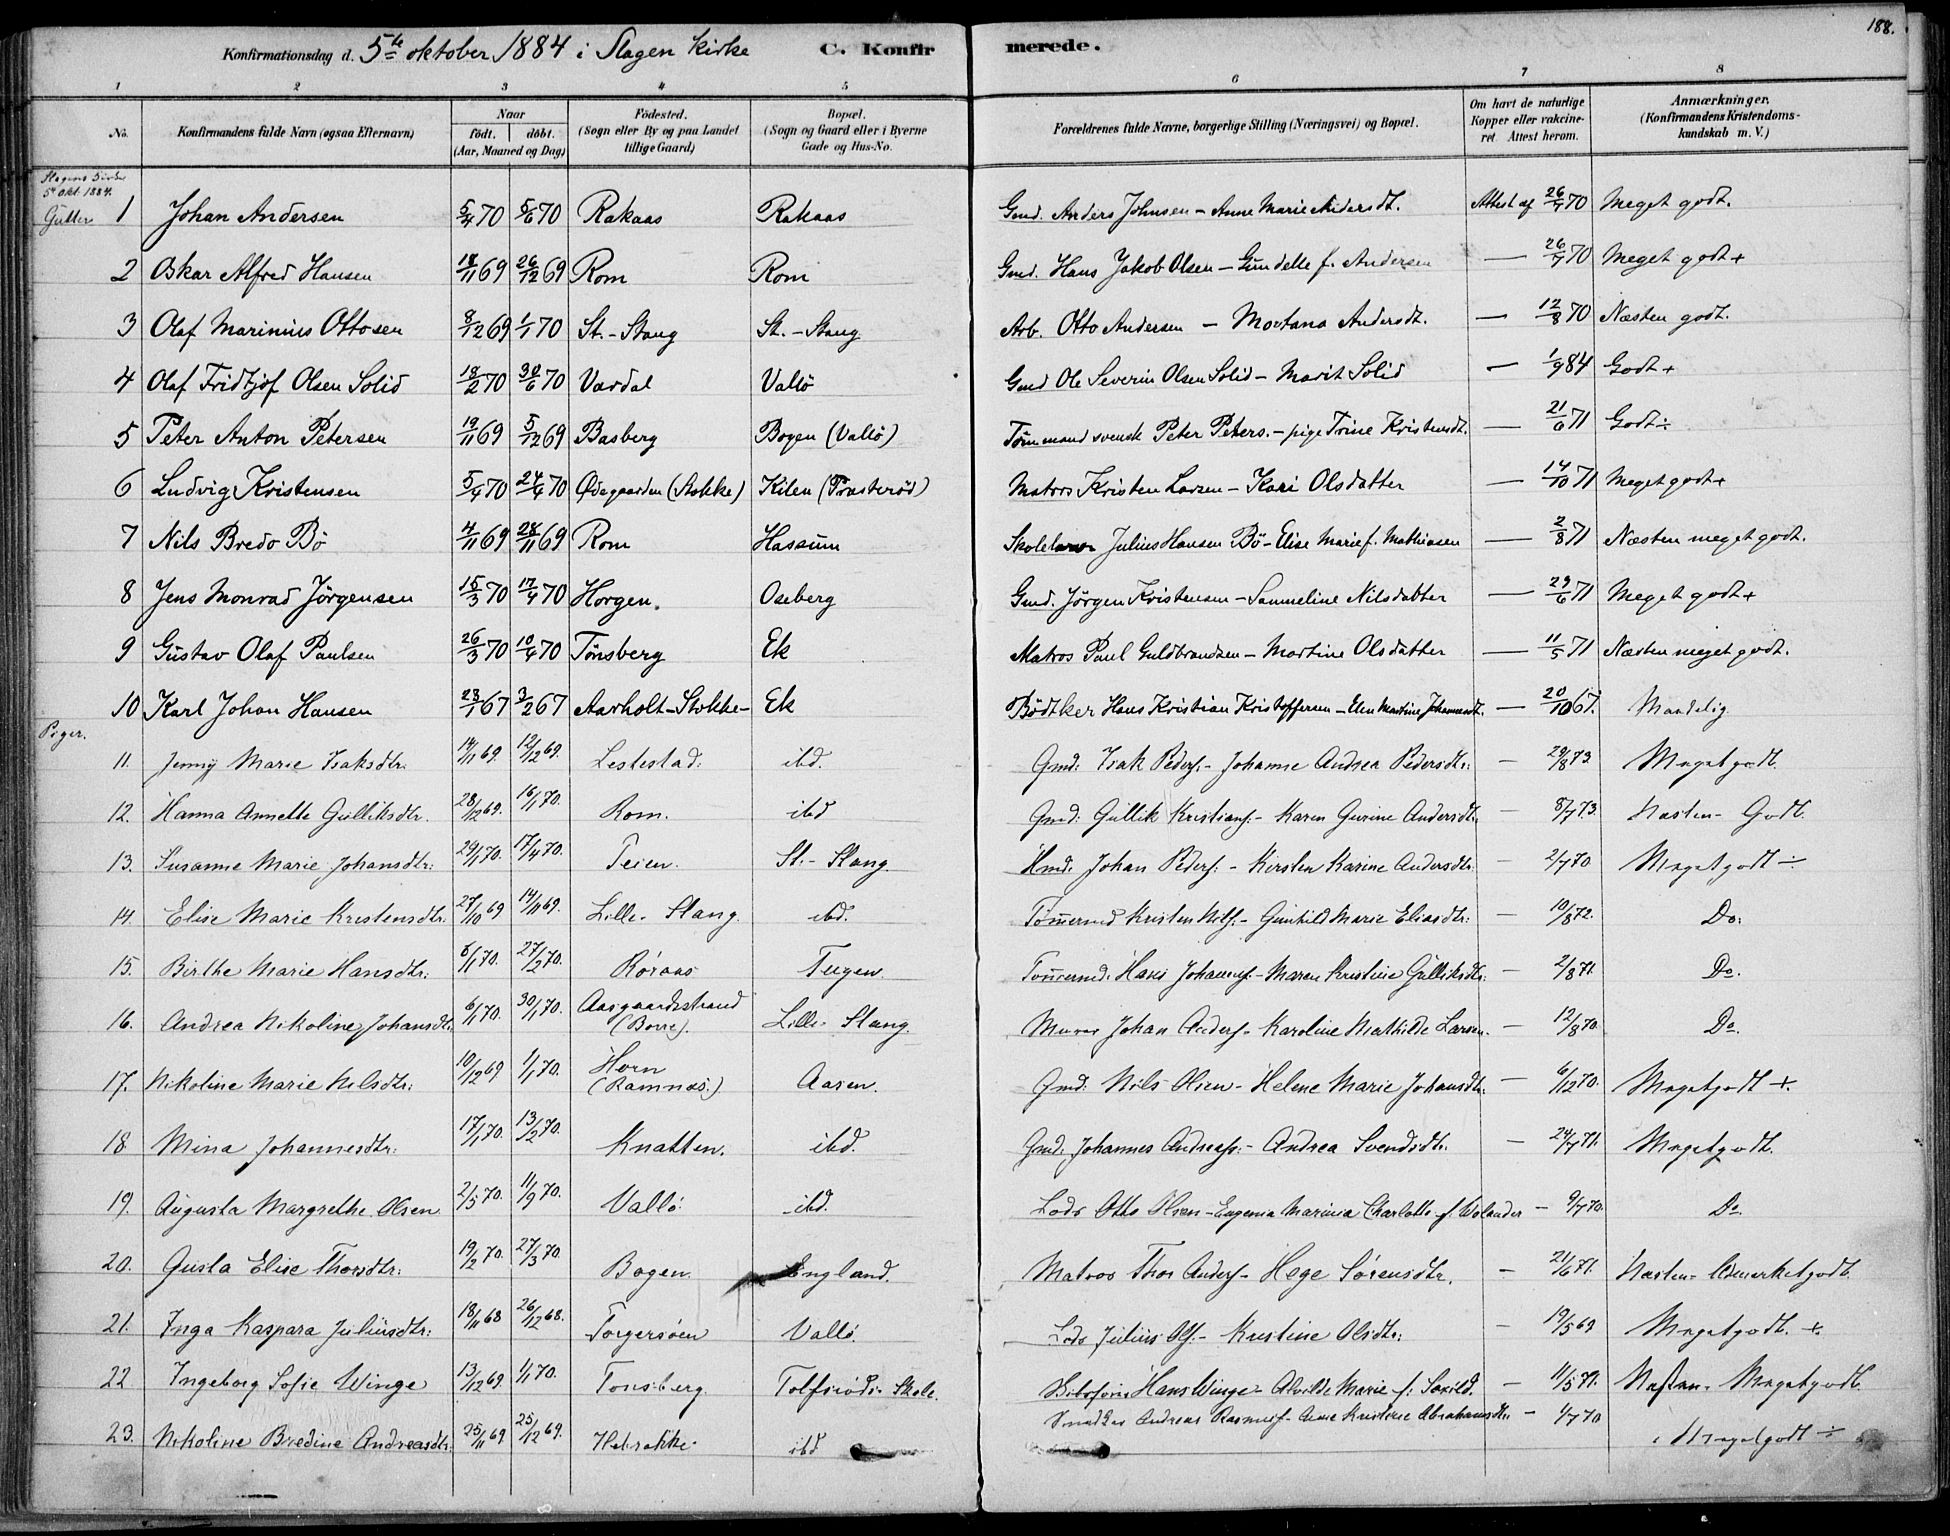 188.
Konfirmationsdag d. 5te oktober 1884 i Slagen Kirke C. Konfirmerede.
1 2 3 4 5 6 7 8
No. Konfirmandens fulde Navn (ogsaa Efternavn) Naar født. døbt. (Aar, Maaned og Dag) Fødested. (Sogn eller By og paa Landet tillige Gaard) Bopæl. (Sogn og Gaard eller i Byerne Gade og Hus-No. Forældrenes fulde Navne, borgerlige Stilling (Næringsvei) og Bopæl. Om havt de naturlige Kopper eller vakcineret. Attest herom. Anmærkninger. (Konfirmandens Kristendomskundskab m. V.)
5te Okt. 1884.
Gutter
1 Johan Andersen 5/4 70 5/6 70 Rakaas Rakaas Gmd. Anders Johnsen - Anne Marie Andersdt. Attest af 26/7 70 Meget godt.
2 Oskar Alfred Hansen 18/11 69 26/12 69 Rom Rom Gmd. Hans Jakob Olsen - Gundelle f. Andersen — 26/7 70 Meget godt +
3 Olaf Marinius Ottosen 8/12 69 1/1 70 St. - Stang St. - Stang Arb. Otto Andersen - Mortana Andersdt. — 12/8 70 Næsten godt.
4 Olaf Fridtjof Olsen Solid 18/2 70 30/6 70 Vardal Vallö Gmd Ole Severin Olsen Solid - Marit Solid — 1/9 84 Godt +
5 Peter Anton Petersen 19/11 69 5/12 69 Basberg Bogen (Vallö) Tömmand svensk Peter Peters. - pige Trine Kristensdt. — 21/6 71 Godt ÷
6 Ludvig Kristensen 5/4 70 24/4 70 Ødegaarden (Stokke) Kilen (Træsterød) Matros Kristen Larsen - Kari Olsdatter — 14/10 71 Meget godt +
7 Nils Bredo Bö 4/11 69 28/11 69 Rom Hassum Skolelærer Julius Hansen Bö - Elise Marie f. Mathiasen — 2/8 71 Næsten meget godt.
8 Jens Monrad Jörgensen 15/3 70 17/4 70 Horgen. Oseberg Gmd. Jörgen Kristensen - Sammeline Nilsdatter — 29/6 71 Meget godt +
9 Gustav Olaf Paulsen 26/3 70 10/4 70 Tönsberg Ek Matros Paul Guldbrandsen - Martine Olsdatter — 11/5 71 Næsten meget godt.
10 Karl Johan Hansen 23/1 67 3/2 67 Aarholt - Stokke - Ek Bödtker Hans Kristian Kristoffersen - Elen Martine Johannesdt. — 20/10 67. Maadelig
Piger.
11. Jenny Marie Isaksdtr. 14/11 69. 12/12 69. Lestestad. ibd. Gmd. Isak Peders. - Johanne Andrea Pedersdtr: — 29/8 73. Meget godt.
12. Hanna Annette Gulliksdtr. 28/12 69. 16/1 70. Rom. ibd Gmd. Gullik Kristians. - Karen Gurine Andersdtr. — 8/7 73. Næsten - Godt.
13. Susanne Marie Johansdtr: 29/1 70. 17/4 70. Teien. St. - Stang. Hmd. Johan Peders. - Kirsten Karine Andersdtr: — 2/7 70 Meget godt ÷
14. Elise Marie Kristensdtr. 27/10 69 14/11 69. Lille - Stang. ibd. Tømmermd Kristen Nils. - Gunhild Marie Eliasdtr: — 10/8 72. Do:
15. Birthe Marie Hansdtr: 6/1 70. 27/2 70. Röraas Tugen. Tømmermd. Hans Johanns. - Maren Kristine Gulliksdtr: — 2/8 71. Do.
16. Andrea Nikoline Johansdtr. 6/1 70. 30/1 70. Aasgaardstrand (Borre). Lille - Stang. Murer Johan Anders. - Karoline Mathilde Larsen. — 12/8 70. Do.
17. Nikoline Marie Nilsdtr: 10/12 69 1/1 70. Horn (Ramnæs.) Aasen. Gmd: Nils Olsen - Helene Marie Johansdtr: — 6/12 70. Meget godt +.
18 Mina Johannesdtr: 17/1 70. 13/2 70. Knatten. ibd. Gmd: Johannes Andreass. - Andrea Svendsdtr. — 24/7 71. Meget godt.
19. Augusta Margrethe Olsen 2/5 70. 11/9 70. Vallö. ibd. Lods Otto Olsen - Eugenia Marinia Charlotte f. Wolander — 9/7 70. Do.
20. Gusta Elise Thorsdtr: 19/2 70. 27/3 70. Bogen. England. Matros Thor Anders. - Hege Sörensdtr. — 21/6 71. Næsten - Udmærket godt.
21. Inga Kaspara Juliusdtr: 18/11 68 26/12 68. Torgersöen Vallö. Lods Julius Ols. - Kristine Olsdtr: — 19/5 69 Meget godt. +.
22 Ingeborg Sofie Winge 13/12 69. 1/1 70. Tonsberg. Tolfsrød - Skole. Hans Winge - Alvilde Marie f. Sørild. — 11/5 71. Næsten - Meget godt.
23. Nikoline Bredine Andreasdtr: 25/11 69 25/12 69. ibd Andreas Rasmuss. - Anne Kristine Abrahamsdtr — 1/7 70 Meget godt ÷